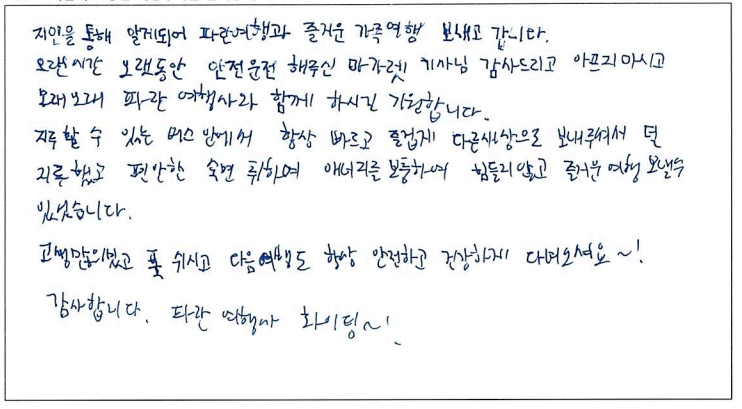 지인을 통해 알게되어 파란여행과 즐거운 가족여행 보내고 갑니다.
오랜시간 오랫동안 안전운전 해주신 마가렛 기사님 감사드리고 아프지마시고
오래오래 파란 여행사와 함께 하시길 기원합니다.
지루할 수 있는 버스안에서 항상 빠르고 즐겁게 다른세상으로 보내주셔서 덜
지루했고 편안한 숙면 취하며 애너지를 보충하여 힘들지않고 즐거운 여행 보낼수
있었습니다.
고생많으셨고 푹 쉬시고 다음여행도 항상 안전하고 건강하게 다녀오셔요~!
감사합니다. 파란 여행사 화이팅~!